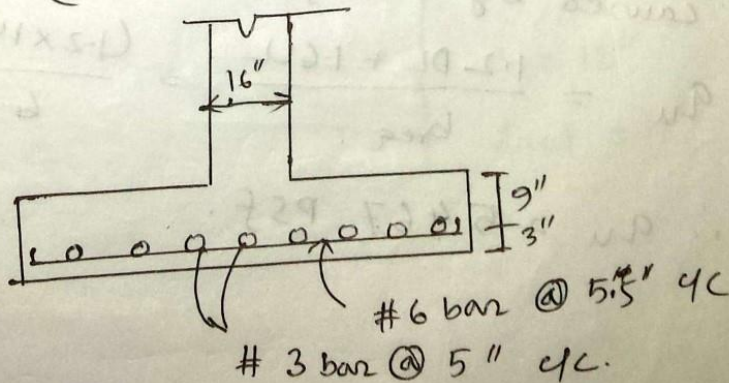 16"
9"
3"
#6 bar @ 5.5" c/c
#3 bar @ 5" c/c.